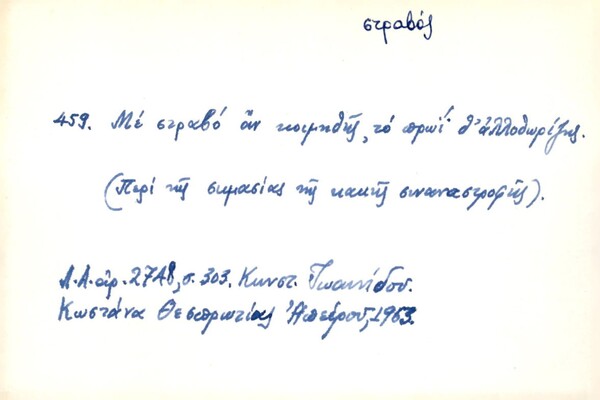 στραβός
459. Μέ στραβό ἄν κοιμηθῇς, τό πρωΐ θ' ἀλλοθωρίζῃς.
(Περί τῆς σημασίας τῆς κακῆς συναναστροφῆς).
Λ.Α. ἀρ. 2748, σ. 303. Κωνστ. Ἰωαννίδου.
Κωστάνα Θεσπρωτίας Ἠπείρου, 1963.